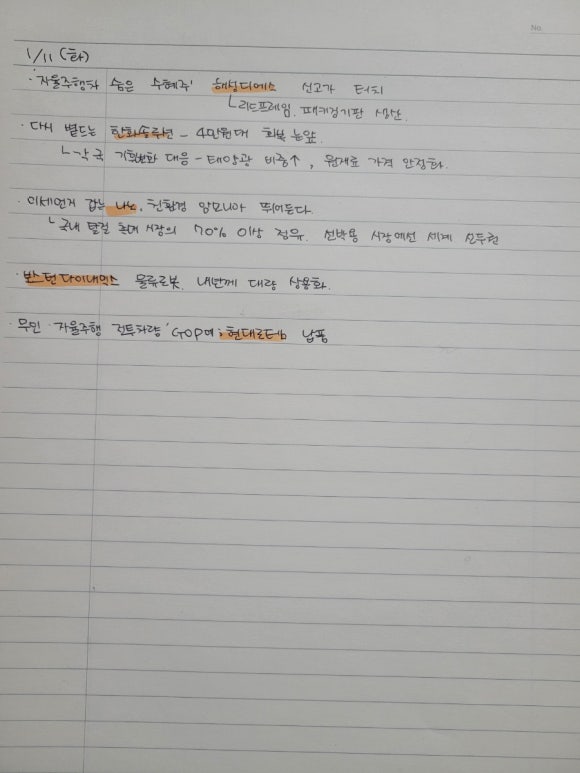 No.
1/11 (화)
· '자율주행차 숨은 수혜주' 해성디에스 신고가 터치
└리드프레임, 패키징기판 생산.
· 다시 볕드는 한화솔루션 - 4만원대 회복 눈앞
└각국 기후변화 대응 - 태양광 비중↑, 원재료 가격 안정화.
· 미세먼지 잡는 나노, 친환경 암모니아 뛰어든다.
└국내 탈질 촉매 시장의 70% 이상 점유. 선박용 시장에선 세계 선두권
· 보스턴다이내믹스 물류로봇, 내년께 대량 상용화.
· 무인 자율주행 전투차량 'GOP에' 현대로템 납품